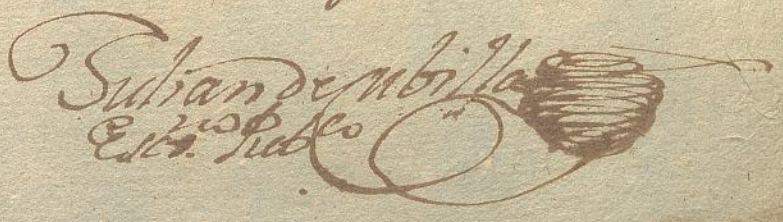 Julian de cubilla
Essno. Pubco